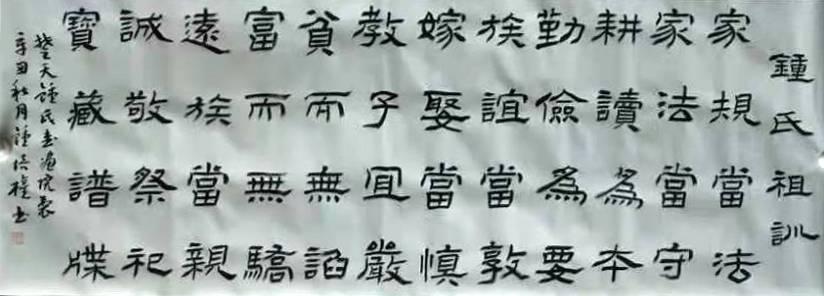 鍾氏祖訓
家規當法
家法當守
耕讀為本
勤儉為要
族誼當敦
嫁娶當慎
教子宜嚴
貧而無諂
富而無驕
遠族當親
誠敬祭祀
寶藏譜牒
楚天鍾氏書畫院裔
辛丑秋月鍾書